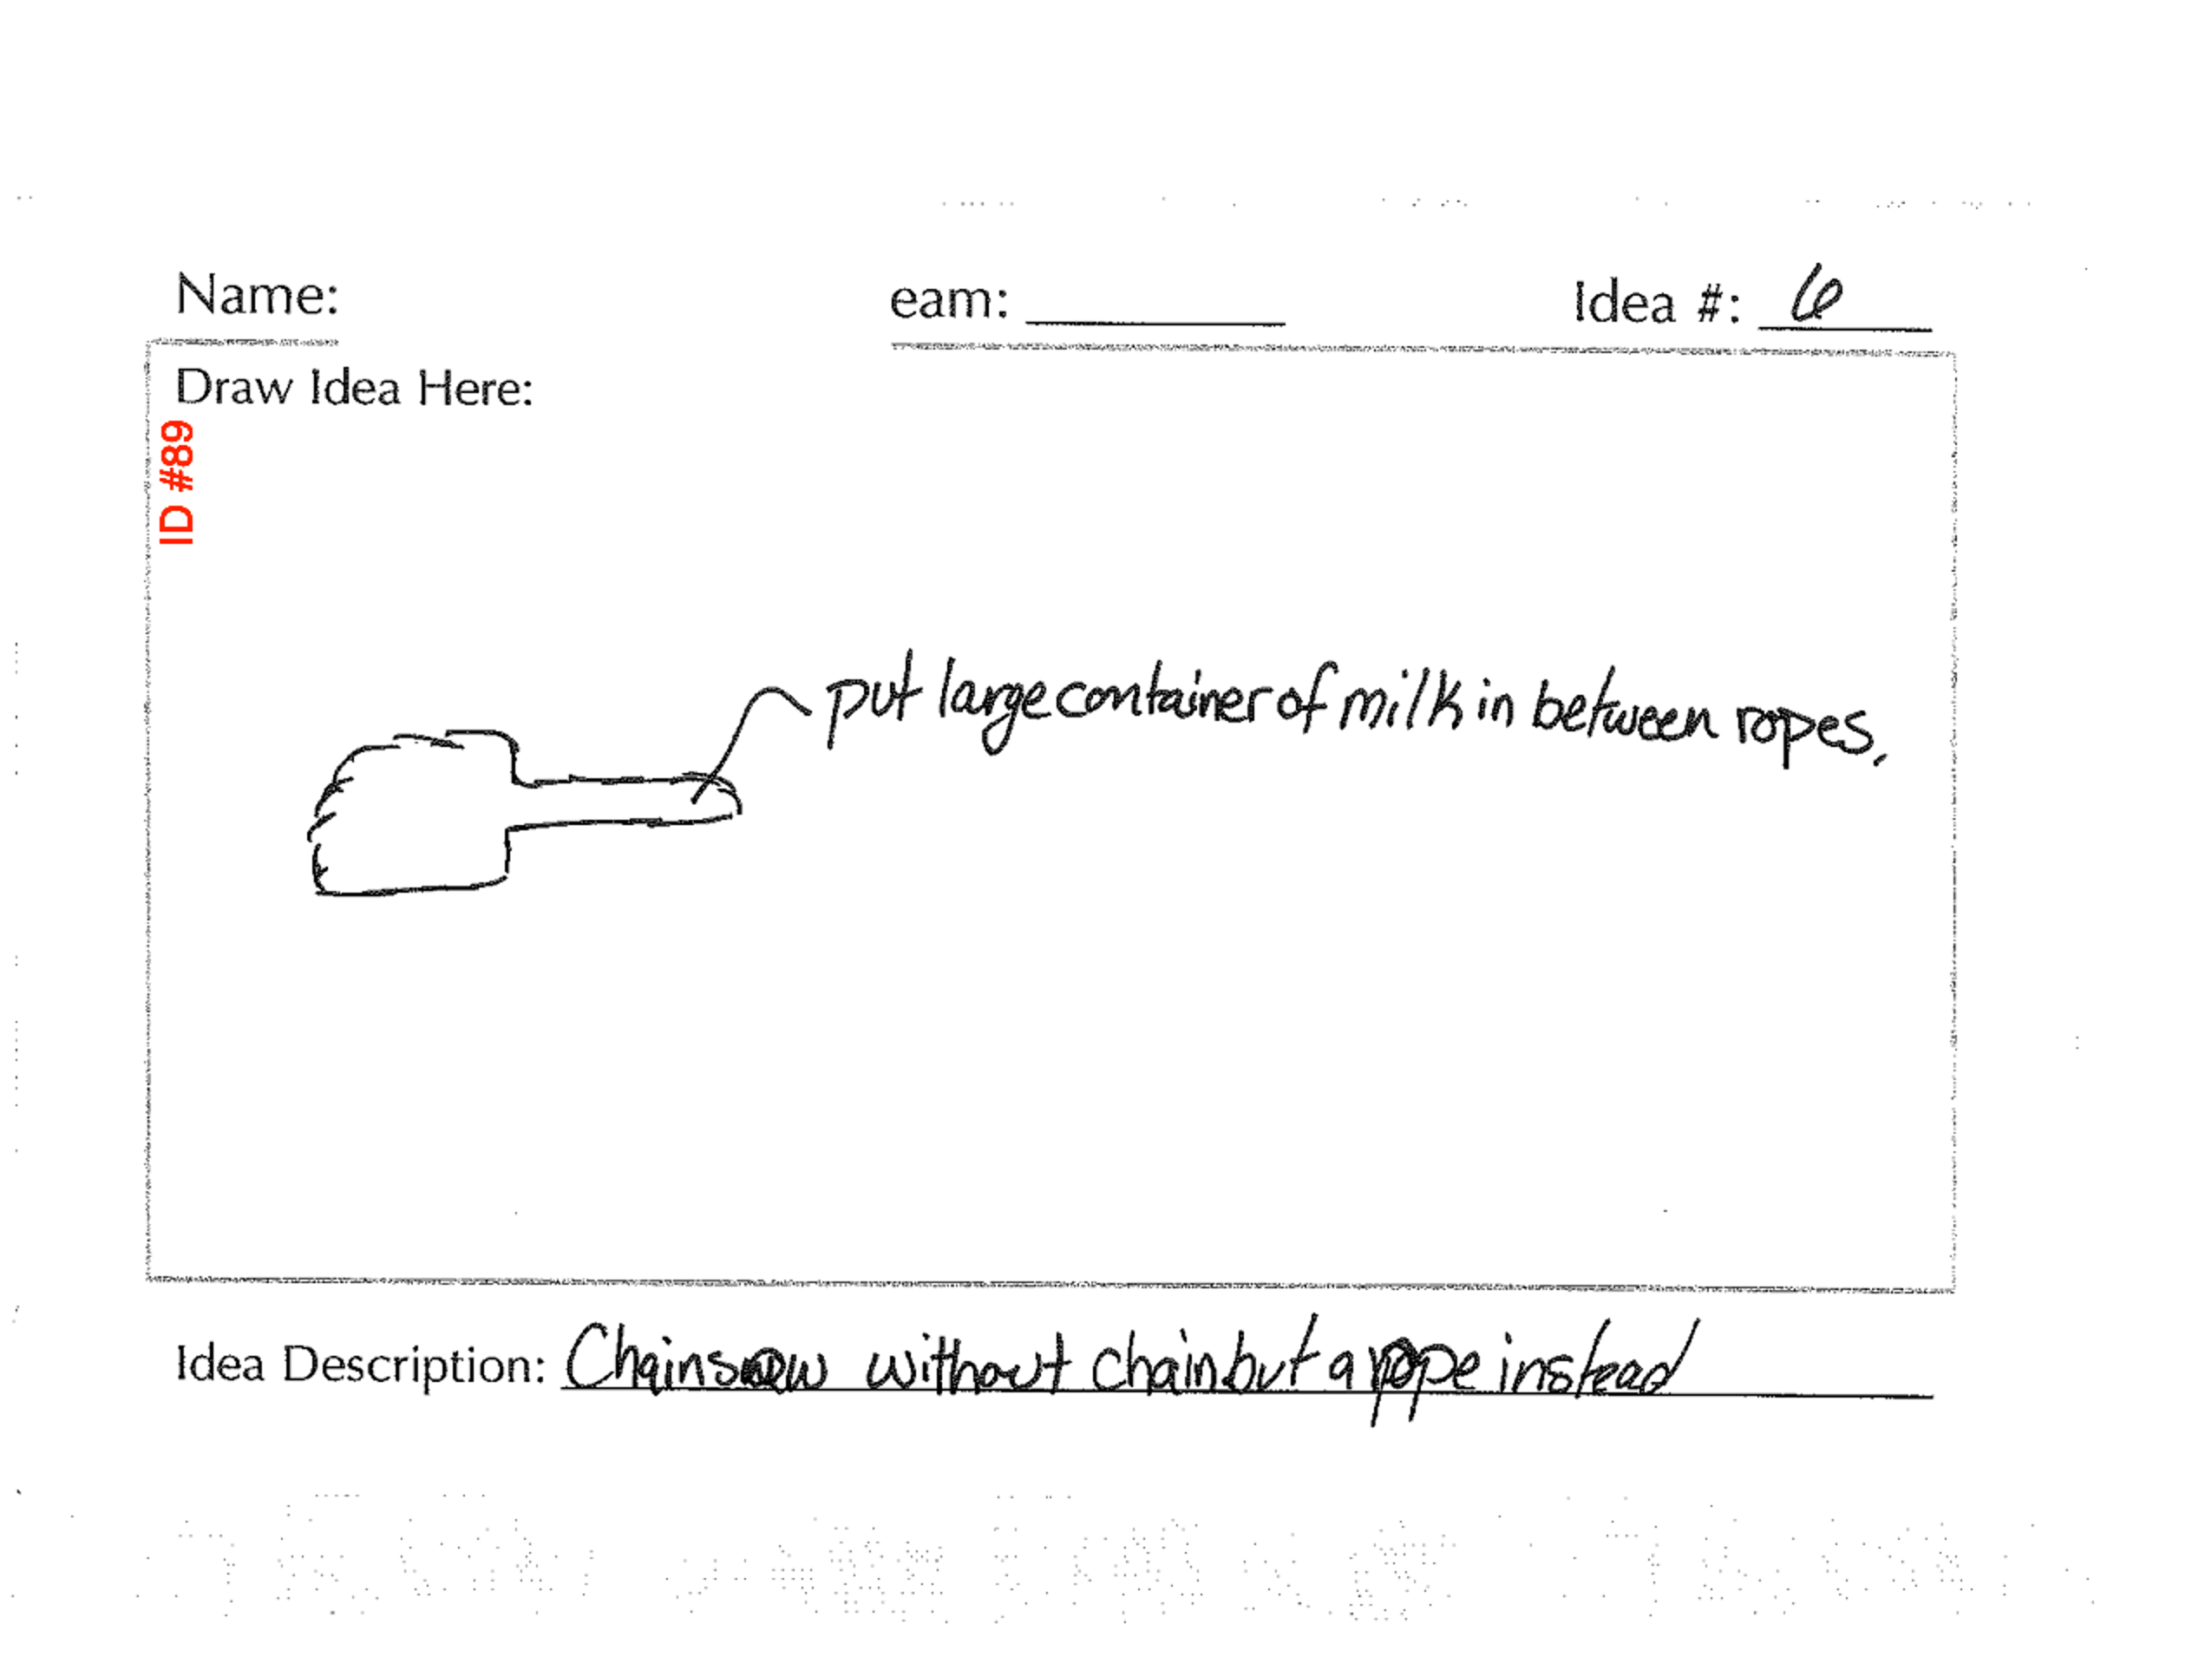 Name:
eam:
Idea #: 6
Draw Idea Here:
ID #89
put large container of milk in between ropes.
Idea Description: Chainsaw without chain but a rope instead